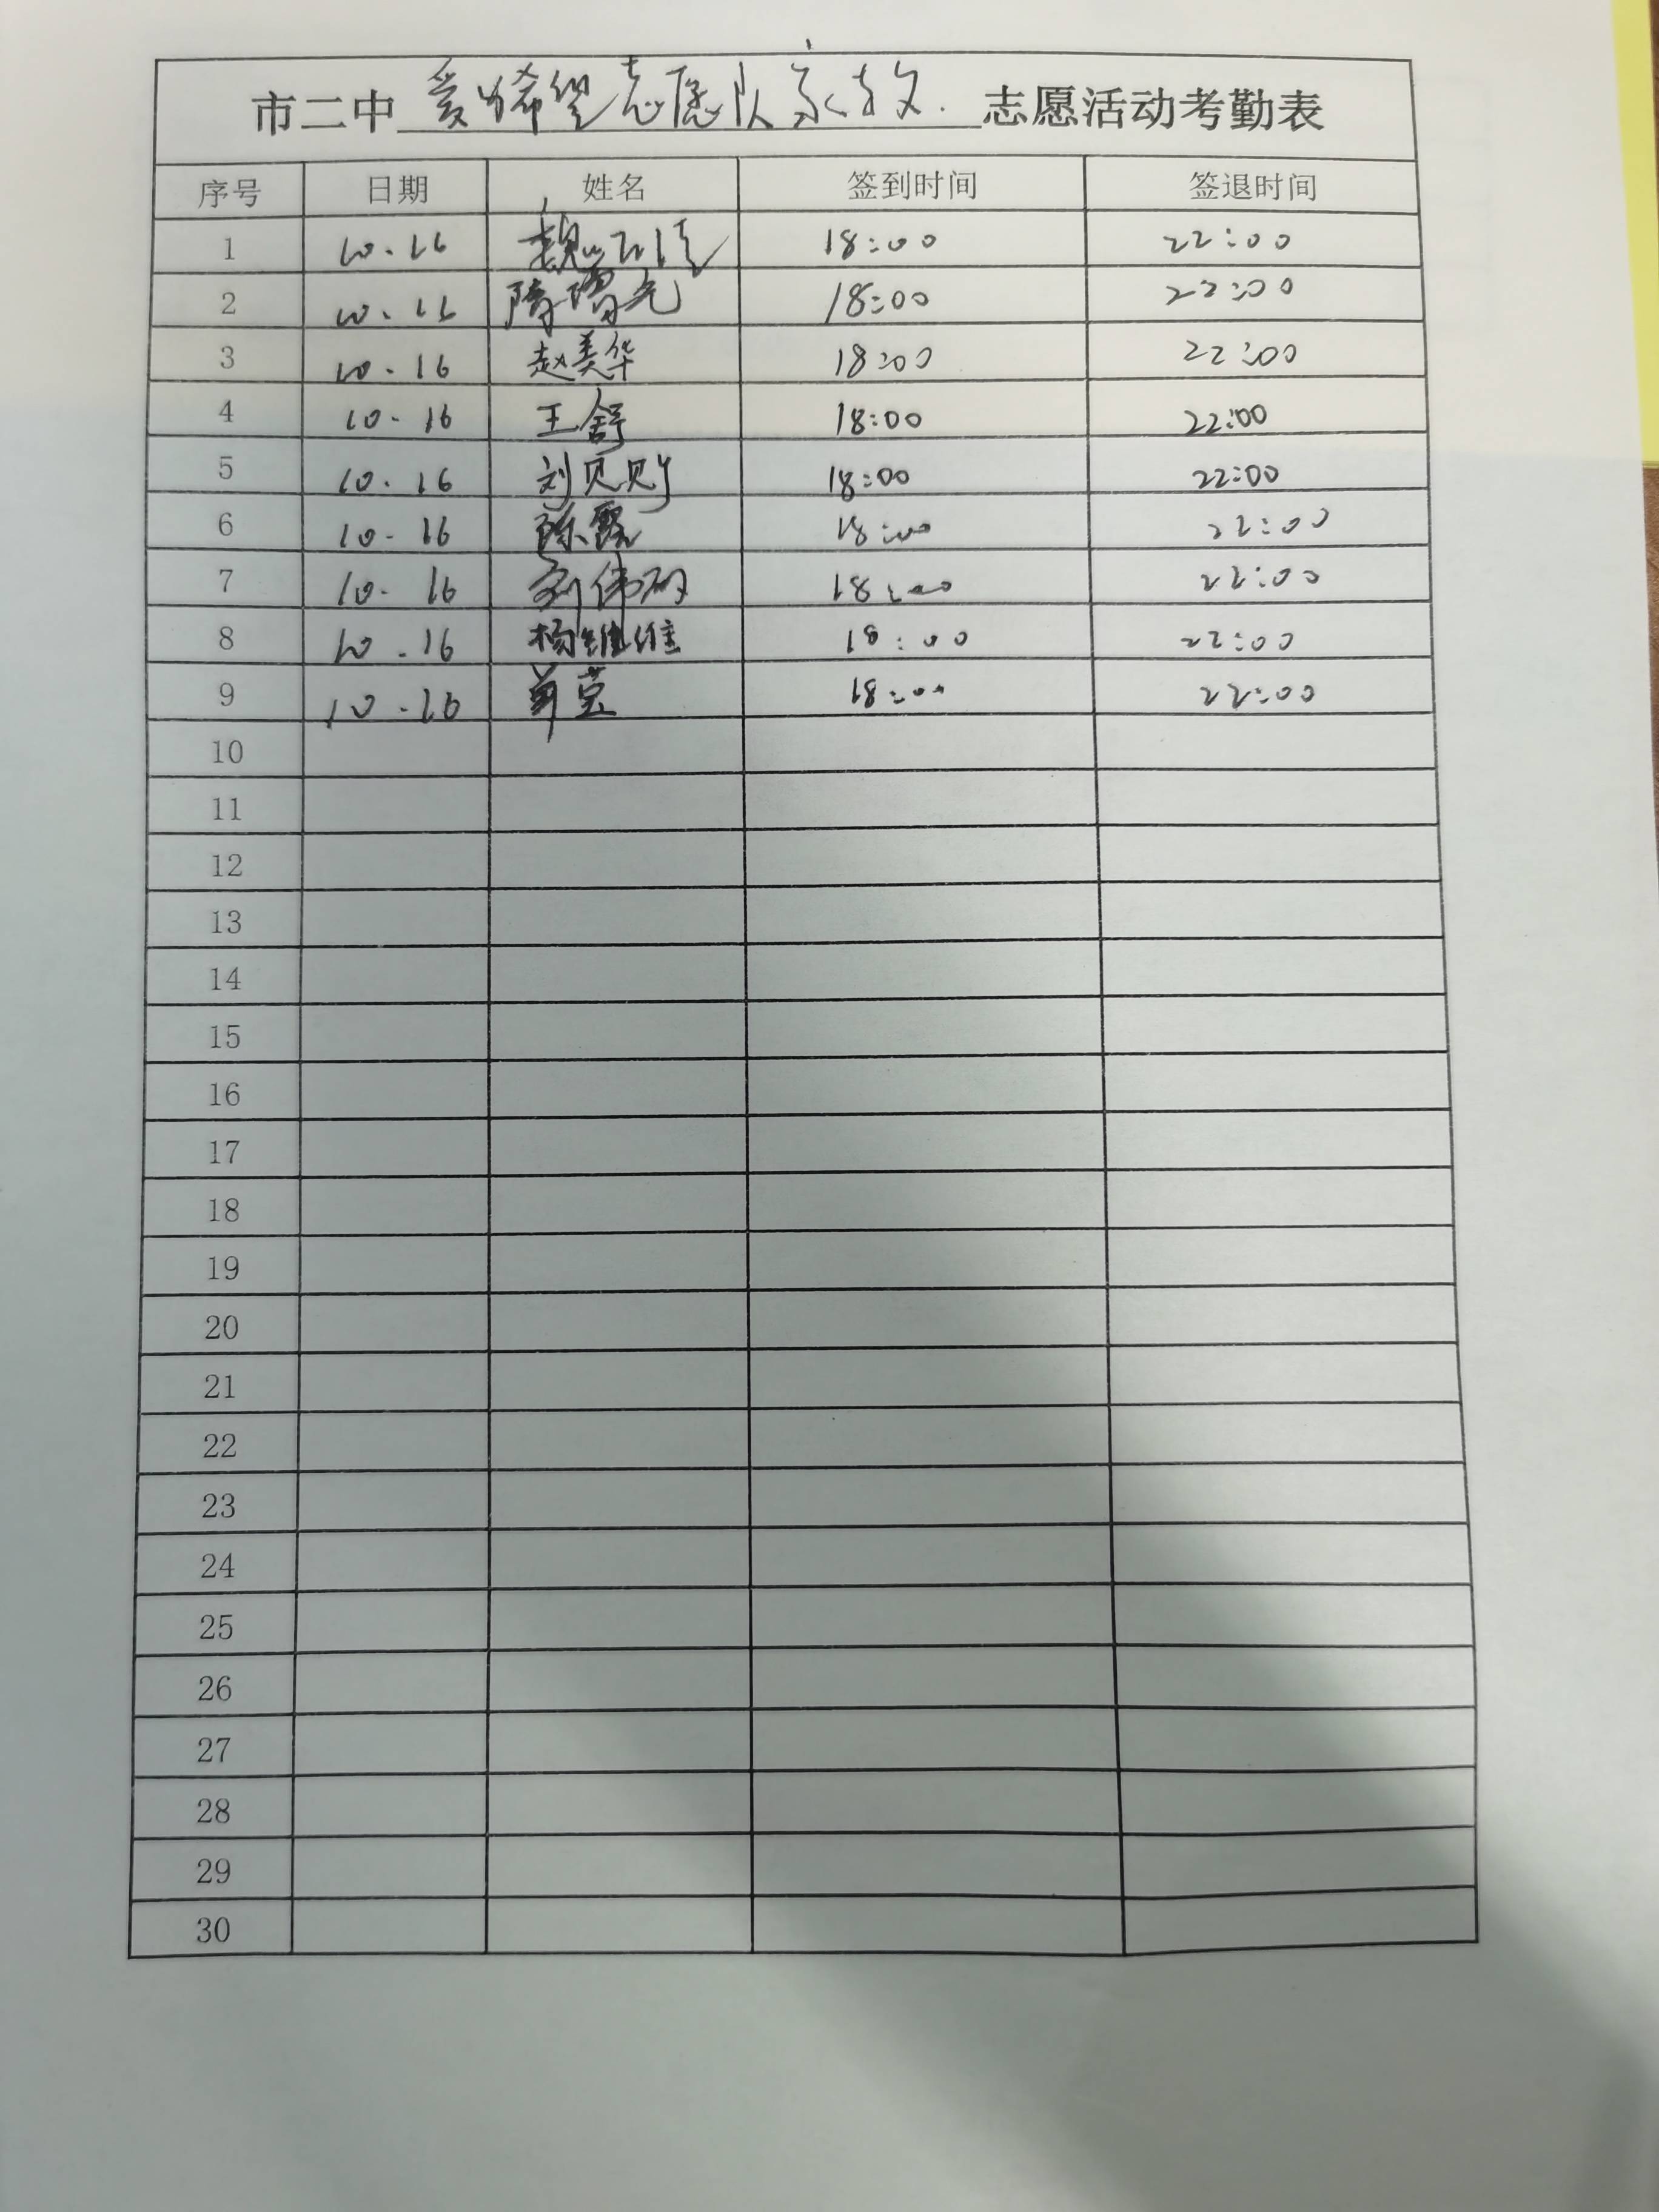 市二中爱心希望志愿队家教.志愿活动考勤表
序号 日期 姓名 签到时间 签退时间
1 10.16 魏 18:00 22:00
2 10.16 隋 18:00 22:00
3 10.16 赵美华 18:00 22:00
4 10.16 王舒 18:00 22:00
5 10.16 刘见则 18:00 22:00
6 10.16 陈露 18:00 22:00
7 10.16 刘伟 18:00 22:00
8 10.16 杨维维 18:00 22:00
9 10.16 18:00 22:00
10
11
12
13
14
15
16
17
18
19
20
21
22
23
24
25
26
27
28
29
30